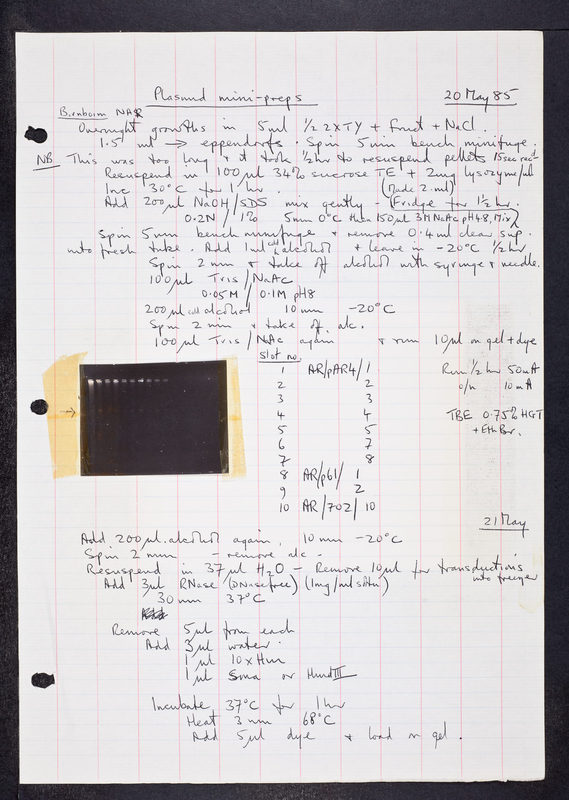 Plasmid mini-preps 20 May 85
Birnboim NAR
Overnight growths in 5ml 1/2 2XTY + Fruct + NaCl.
1.5 ml → eppendorfs. Spin 5min bench minifuge.
NB This was too long & it took 1/2hr to resuspend pellets 15sec
Resuspend in 100µl 34% sucrose TE + 2mg lysozyme/ml
Inc 30°C for 1 hr. (Made 2ml)
Add 200µl NaOH/SDS mix gently - (Fridge for 1 1/2 hr.
0.2N / 1% 5min 0°C then 150µl 3M NaAc pH4.8, Mix)
Spin 5min bench minifuge & remove 0.4ml clear sup.
into fresh tube. Add 1ml cold alcohol & leave in -20°C 1/2hr
Spin 2min & take off alcohol with syringe & needle.
100µl Tris/NaAc
0.05M / 0.1M pH8
200µl cold alcohol 10min -20°C
Spin 2min & take off alc.
100µl Tris/NaAc again & run 10µl on gel + dye
Slot no.
1 AR/pAR4/1 Run 1/2hr 50mA
2 2 o/n 10mA
3 3
4 4 TBE 0.75% HGT
5 5 + EthBr.
6 7
7 8
8 AR/p61/ 1
9 2
10 AR/702/10
21 May
Add 200µl alcohol again, 10min -20°C
Spin 2min - remove alc -
Resuspend in 37µl H2O - Remove 10µl for transductions
into freezer
Add 3µl RNase (DNase free) (1mg/ml soltn)
30min 37°C
Remove 5µl from each
Add 3µl water.
1µl 10xHin
1µl Sma or HindIII
Incubate 37°C for 1hr
Heat 3min 68°C
Add 5µl dye & load on gel.